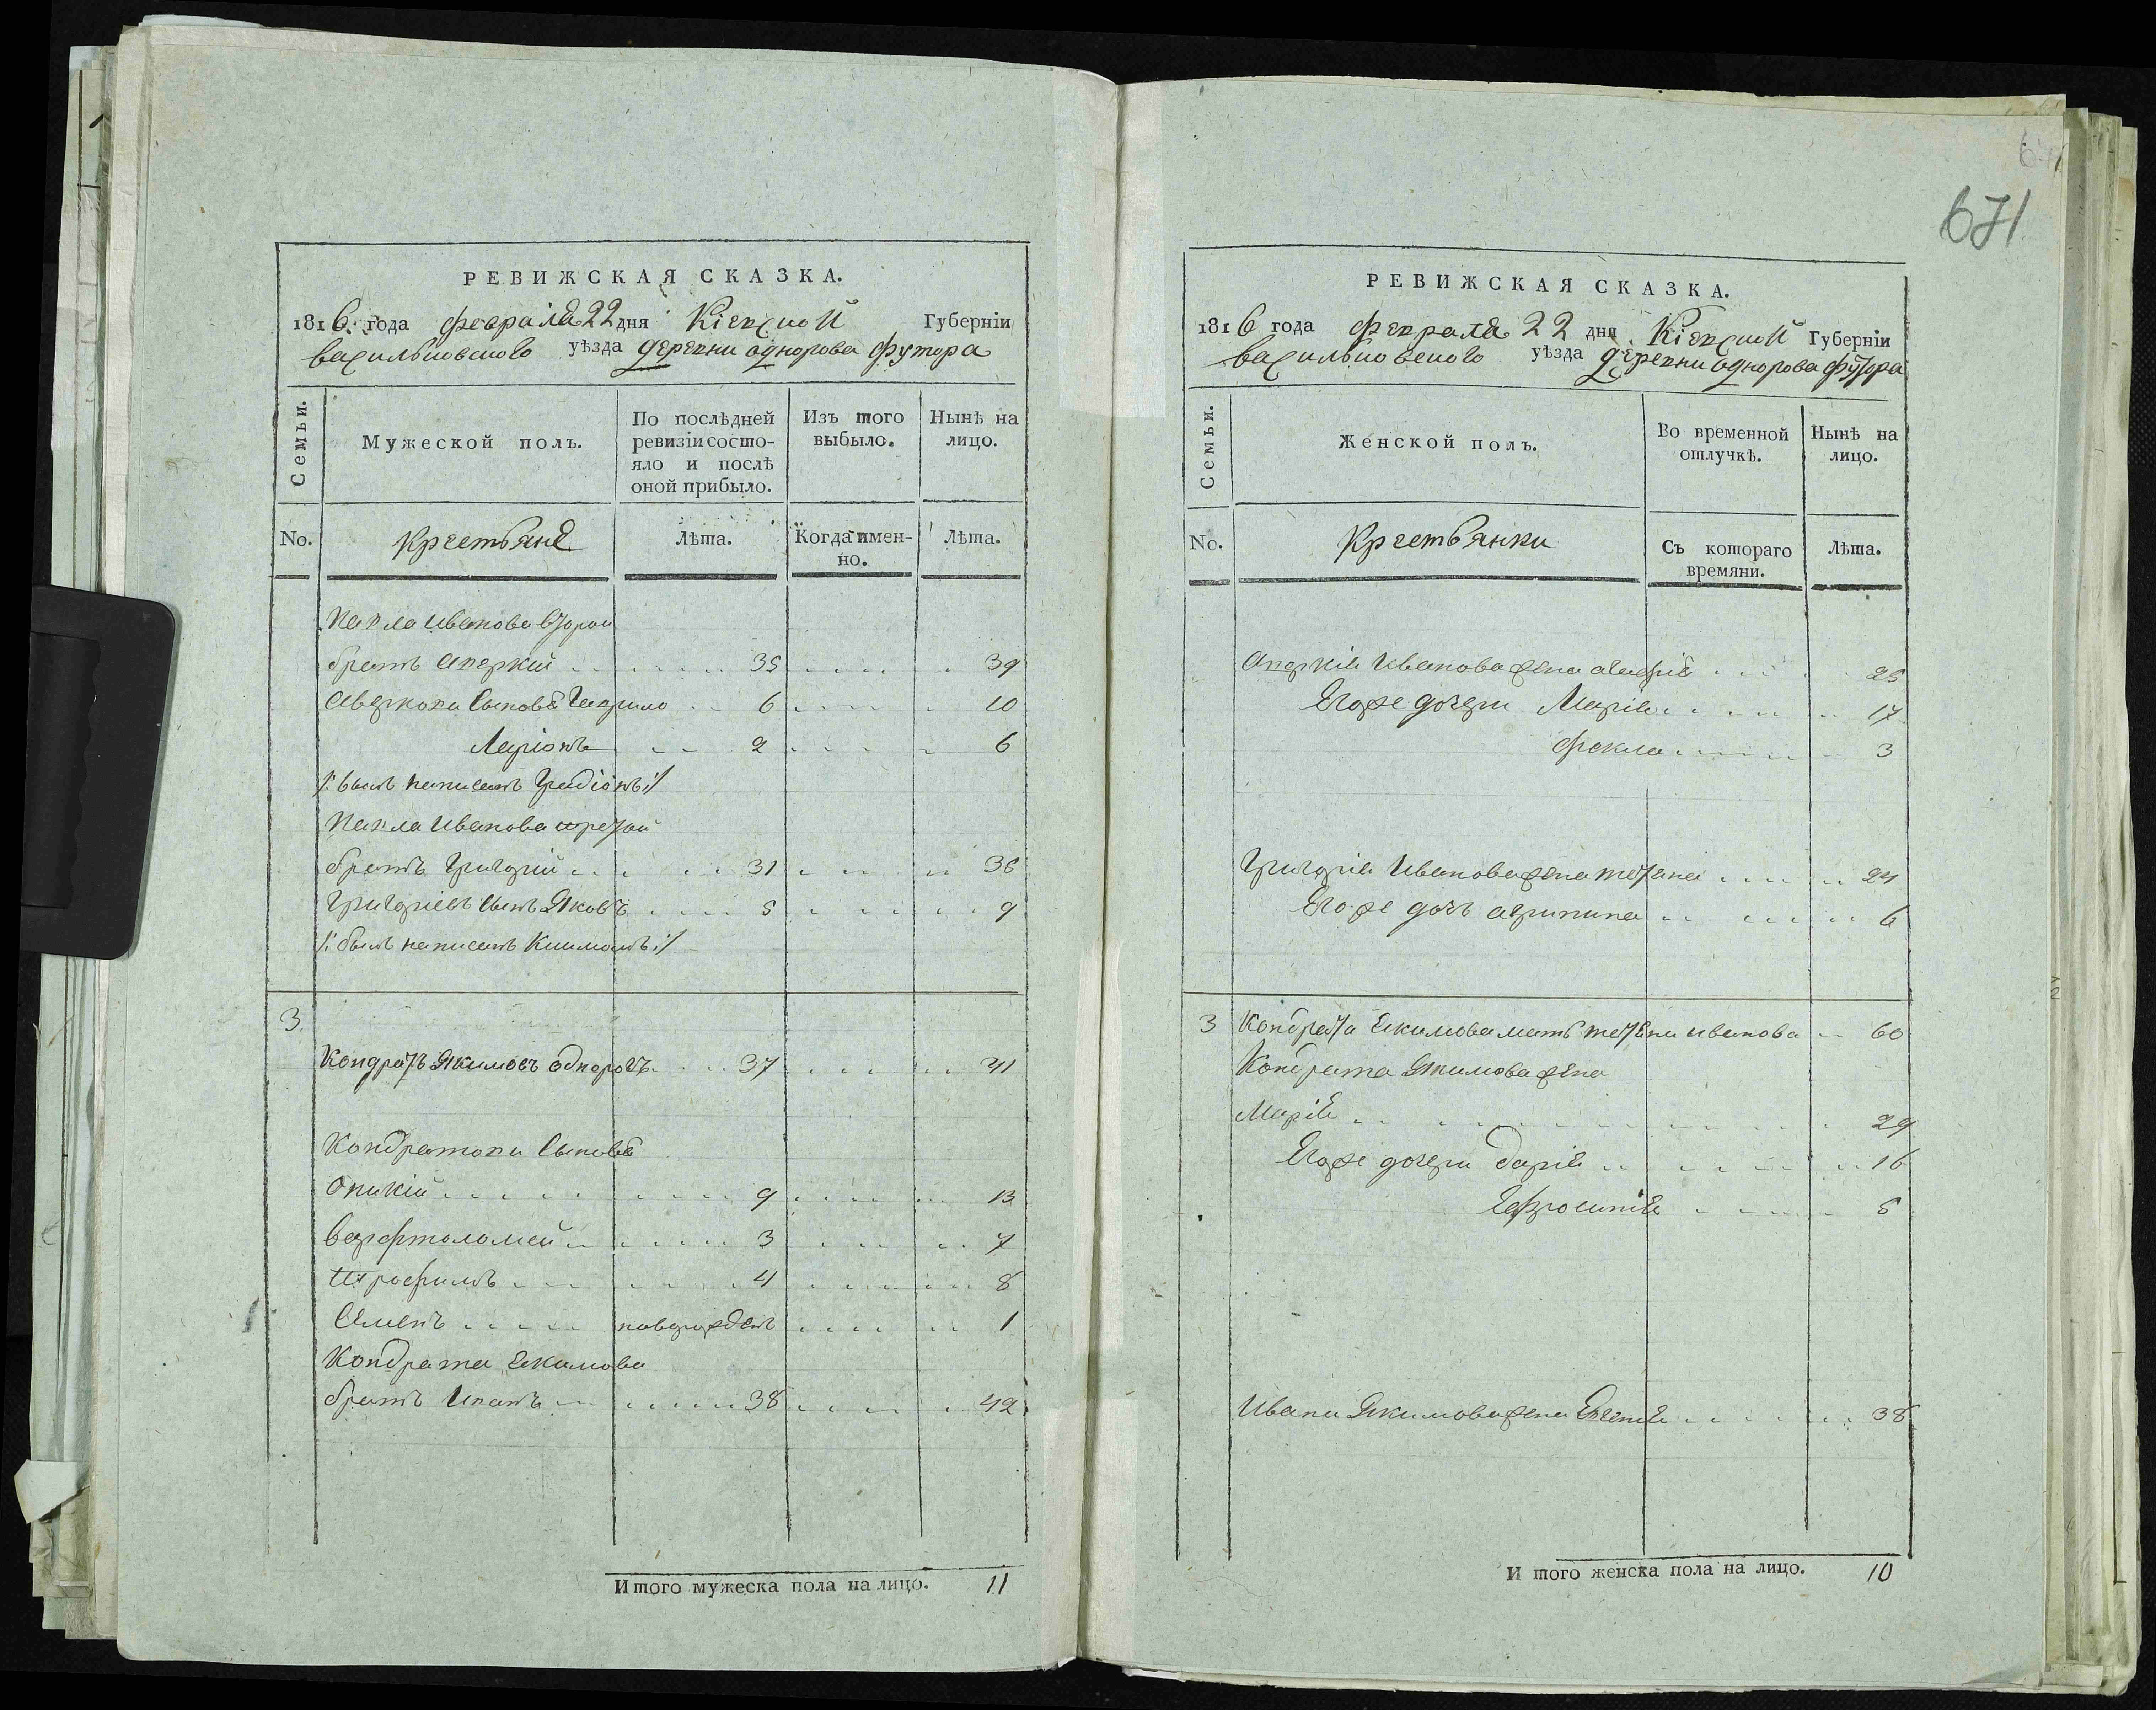 671
РЕВИЖСКАЯ СКАЗКА.
1816 года февраля 22 дня Кіевской Губерніи
васильковского уѣзда деревни однорога футора
Семьи. Мужеской полъ. По послѣдней ревизіи состояло и послѣ оной прибыло. Изъ того выбыло. Нынѣ на лицо.
No. Крестьяне Лѣта. Когда имен-но. Лѣта.
Павла Иванова второй
братъ Аверкий 35 39
Аверкови Сыновя Гаврило 6 10
Ларіонъ 2 6
/: былъ написанъ :/
Павла Иванова третой
братъ Григорий 31 35
Григориевъ Сынъ Яковъ 5 9
/: былъ написанъ :/
3
Кондратъ Якимовъ однорогъ 37 41
Кондратови Сыновя
9 13
Варфтоломей 3 7
Трофимъ 4 8
Семенъ новорожденъ 1
Кондрата Екимова
братъ Иванъ 38 42
Итого мужеска пола на лицо. 11
РЕВИЖСКАЯ СКАЗКА.
1816 года февраля 22 дня Кіевской Губерніи
васильковского уѣзда деревни однорога футора
Семьи. Женской полъ. Во временной отлучкѣ. Нынѣ на лицо.
No. Крестьянки Съ котораго времяни. Лѣта.
Аверкия Иванова жена 25
Егоже дочери Марія 17
фекла 3
Григория Иванова жена тетяна 24
Егоже дочь агрипина 6
3 Кондрата Екимова мать тетяна иванова 60
Кондрата Якимова жена
Марія 29
Егоже дочери дарія 16
Ефросинія 5
Ивана Якимова жена 38
И того женска пола на лицо. 10